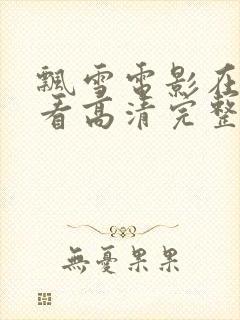 飘雪电影在
看高清完整
無憂果果